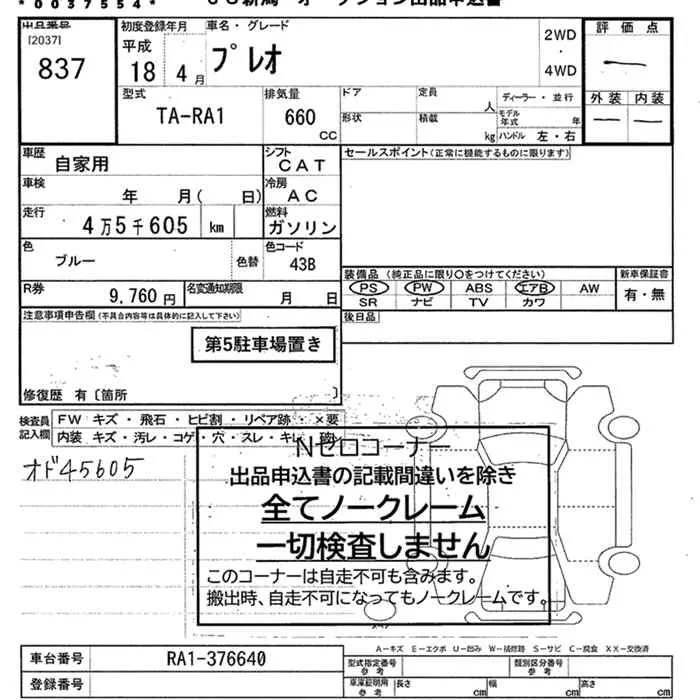 *0037554*
[2037]
837
初度登録年月
平成
18 4月
車名・グレード
プレオ
2WD
・
4WD
評価点
外装 内装
型式
TA-RA1
排気量
660
CC
ドア
形状
定員
人
積載
kg
ディーラー・並行
モデル年式 年
ハンドル 左・右
車歴
自家用
シフト
CAT
セールスポイント(正常に機能するものに限ります)
車検
年 月( 日)
冷房
AC
走行
4万5千605 km
燃料
ガソリン
色
ブルー
色替
色コード
43B
装備品(純正品に限り○をつけてください)
PS PW ABS エアB AW
SR ナビ TV カワ
新車保証書
有・無
R券
9,760 円
名変通知期限
月 日
後日品
注意事項申告欄(不具合内容等は具体的に記入して下さい)
第5駐車場置き
修復歴 有〔箇所 〕
検査員記入欄
FW キズ・飛石・ヒビ割・リペア跡・×要
内装 キズ・汚レ・コゲ・穴・スレ・キレ
オド45605
Nゼロコーナー
出品申込書の記載間違いを除き
全てノークレーム
一切検査しません
このコーナーは自走不可も含みます。
搬出時、自走不可になってもノークレームです。
A-キズ E-エクボ U-凹み W-補修跡 S-サビ C-腐食 XX-交換済
車台番号
RA1-376640
登録番号
型式指定番号
参考
類別区分番号
参考
車庫証明用
参考
長さ cm 幅 cm 高さ cm